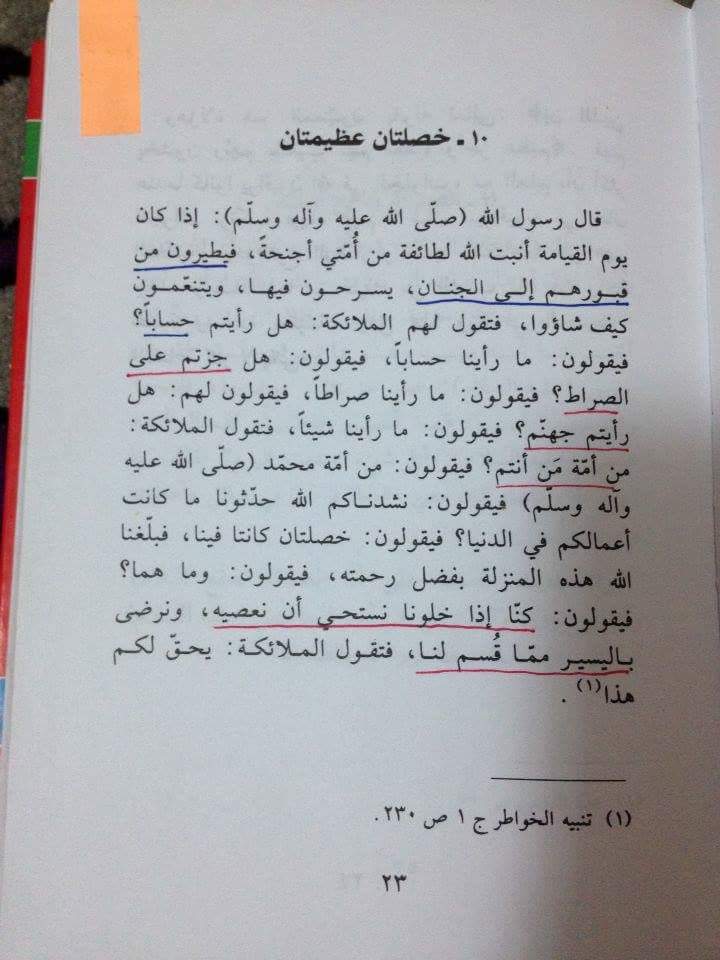 ١٠ - خصلتان عظيمتان
قال رسول الله (صلّى الله عليه وآله وسلّم): إذا كان
يوم القيامة أنبت الله لطائفة من أُمّتي أجنحةً، فيطيرون من
قبورهم إلى الجنان، يسرحون فيها، ويتنعّمون
كيف شاؤوا، فتقول لهم الملائكة: هل رأيتم حساباً؟
فيقولون: ما رأينا حساباً، فيقولون: هل جزتم على
الصراط؟ فيقولون: ما رأينا صراطاً، فيقولون لهم: هل
رأيتم جهنّم؟ فيقولون: ما رأينا شيئاً، فتقول الملائكة:
من أمّة مَن أنتم؟ فيقولون: من أمّة محمّد (صلّى الله عليه
وآله وسلّم) فيقولون: نشدناكم الله حدّثونا ما كانت
أعمالكم في الدنيا؟ فيقولون: خصلتان كانتا فينا، فبلّغنا
الله هذه المنزلة بفضل رحمته، فيقولون: وما هما؟
فيقولون: كنّا إذا خلونا نستحي أن نعصيه، ونرضى
باليسير ممّا قُسم لنا، فتقول الملائكة: يحقّ لكم
هذا(١).
(١) تنبيه الخواطر ج ١ ص ٢٣٠.
٢٣